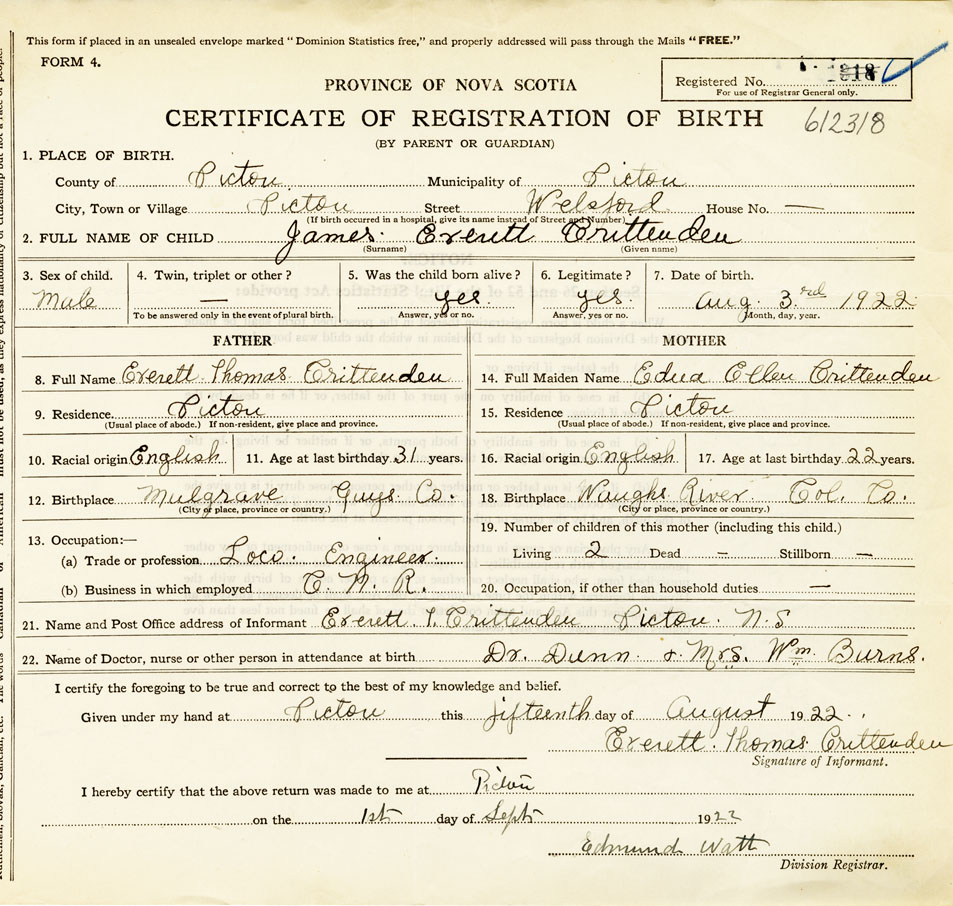 This form if placed in an unsealed envelope marked "Dominion Statistics free," and properly addressed will pass through the Mails "FREE."
FORM 4.
Registered No. 1818
For use of Registrar General only.
PROVINCE OF NOVA SCOTIA
CERTIFICATE OF REGISTRATION OF BIRTH 612318
(BY PARENT OR GUARDIAN)
1. PLACE OF BIRTH.
County of Picton Municipality of Picton
City, Town or Village Picton Street Welsford House No. —
(If birth occurred in a hospital, give its name instead of Street and Number)
2. FULL NAME OF CHILD James Everett Crittenden
(Surname) (Given name)
3. Sex of child. 4. Twin, triplet or other? 5. Was the child born alive? 6. Legitimate? 7. Date of birth.
Male — yes. yes. Aug. 3rd 1922
To be answered only in the event of plural birth. Answer, yes or no. Answer, yes or no. Month, day, year.
FATHER MOTHER
8. Full Name Everett Thomas Crittenden 14. Full Maiden Name Edna Ellen Crittenden
9. Residence. Picton 15. Residence Picton
(Usual place of abode.) If non-resident, give place and province. (Usual place of abode.) If non-resident, give place and province.
10. Racial origin English 11. Age at last birthday 31 years. 16. Racial origin English 17. Age at last birthday 22 years.
12. Birthplace Mulgrave Guys. Co. 18. Birthplace Waughs River Col. Co.
(City or place, province or country.) (City or place, province or country.)
19. Number of children of this mother (including this child.)
13. Occupation:—
(a) Trade or profession Loco. Engineer Living 2 Dead – Stillborn —
(b) Business in which employed C. N. R. 20. Occupation, if other than household duties —
21. Name and Post Office address of Informant Everett. T. Crittenden Picton. N.S
22. Name of Doctor, nurse or other person in attendance at birth Dr. Dunn & Mrs. Wm. Burns.
I certify the foregoing to be true and correct to the best of my knowledge and belief.
Given under my hand at Picton this fifteenth day of August 1922.
Everett. Thomas. Crittenden
Signature of Informant.
I hereby certify that the above return was made to me at Picton
on the 1st day of Sept 1922
Edmund Watt
Division Registrar.